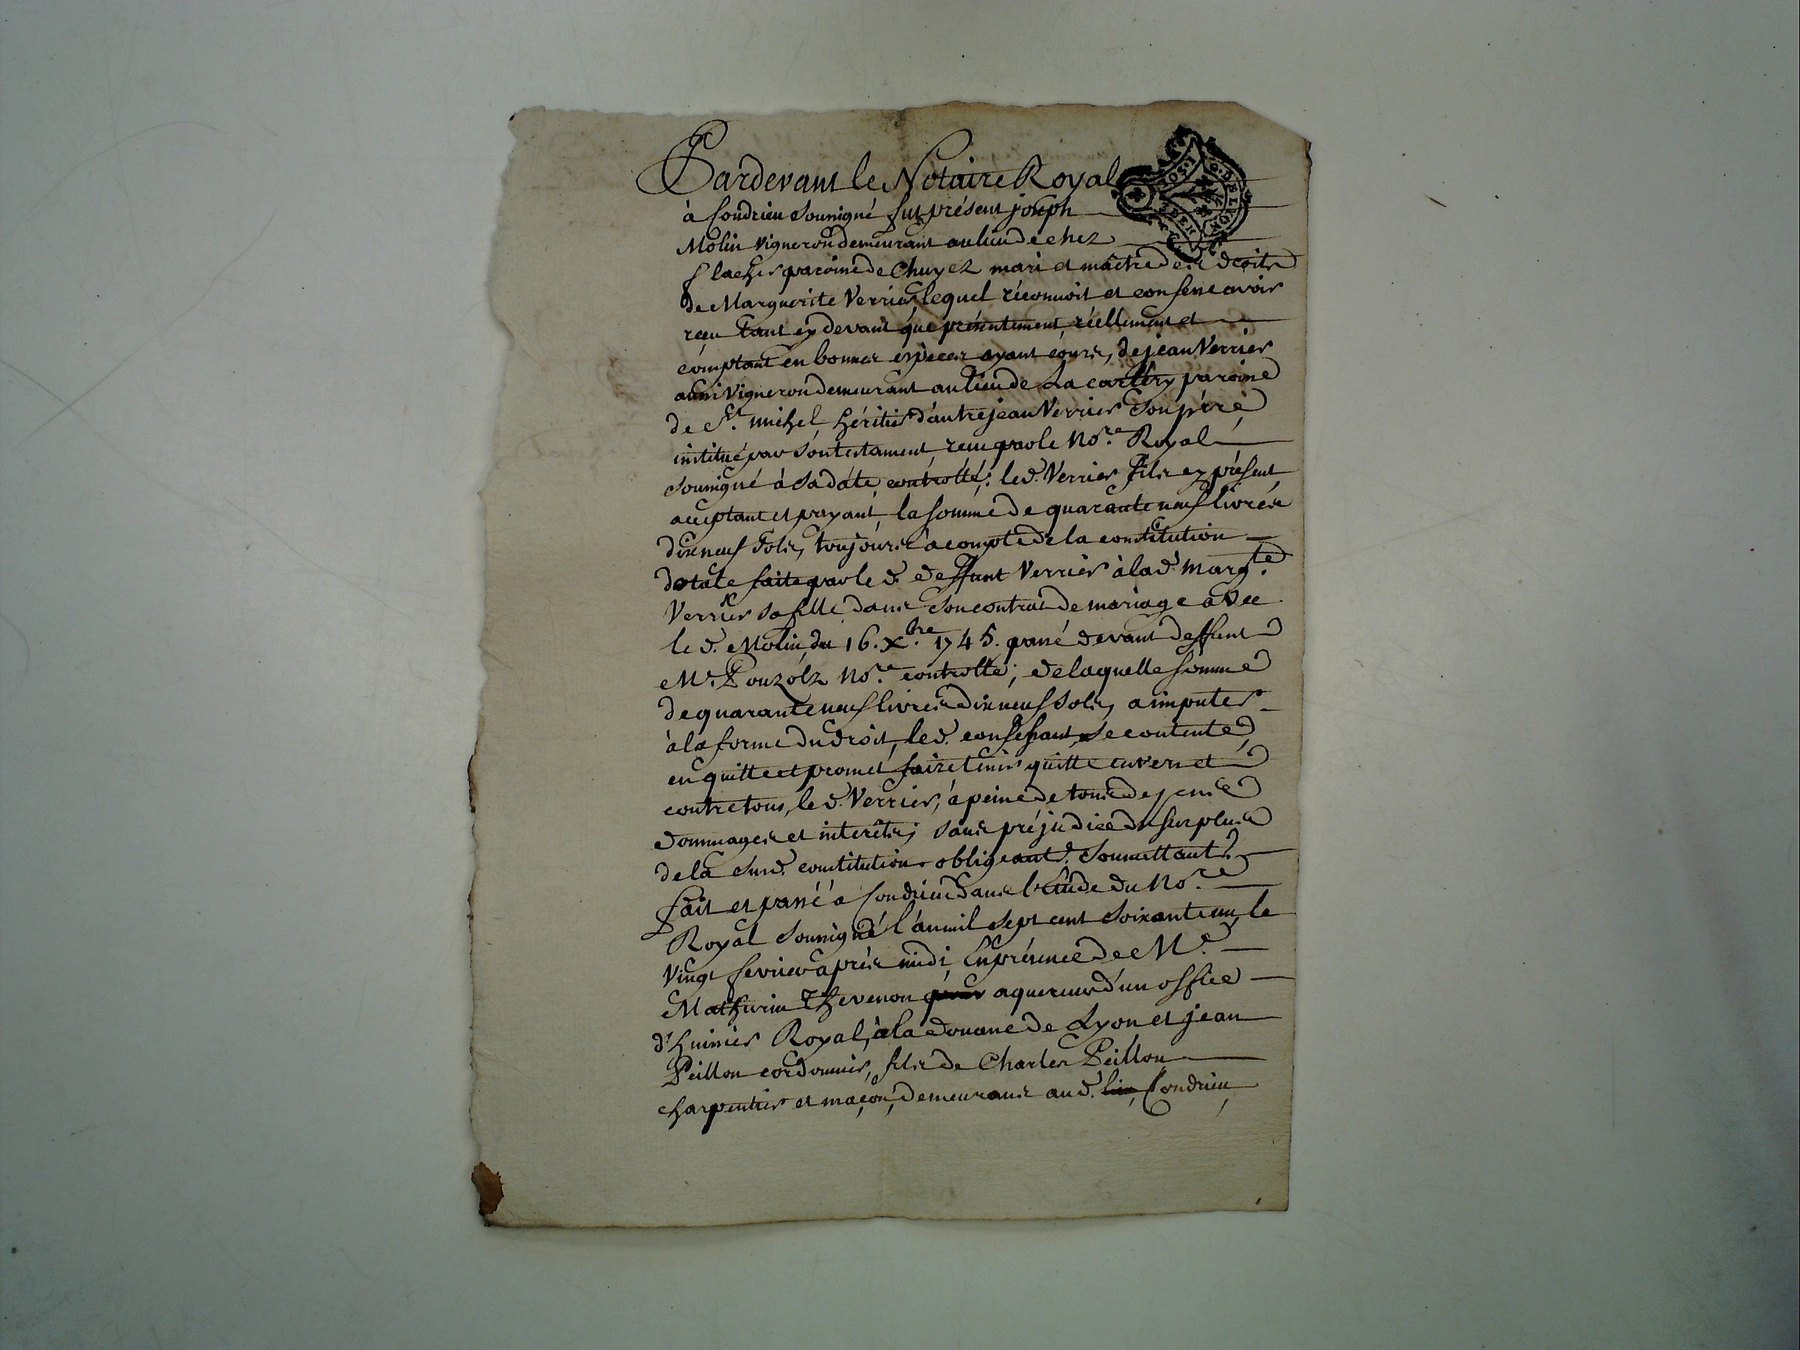 Pardevant le Notaire Royal
à Condrieu soussigné fut présent joseph
Molin vigneron demeurant au lieu de chez
flacher paroisse de Chuyez mari et maître des droits
de Marguerite Verrier lequel réconnoit et confesse avoir
reçu tant cy devant que présentement, réellement et
comptant en bonnes espéces ayant cours, de jean Verrier
aussi vigneron demeurant au lieu de La carthry paroisse
de St. michel, héritier d'autre jean Verrier son pére
institué par son testament, reçu par le Nore. Royal
soussigné à sa date, controllé; le d. Verrier fils cy présent
acceptant et payant, la somme de quarante neuf livres
dix neuf sols, toujours à compte de la constitution
dotale faite par le d. deffunt Verrier à la d. margte.
Verrier sa fille dans son contrat de mariage avec
le d. Molin, du 16. Xbre. 1745. passé devant deffunt
Me. Pouzolz Nore. controllé; de laquelle somme
de quarante neuf livres dix neuf sols, a imputer
à la forme du droit, le d. confessant, se contente,
en quitte et promet faire tenir quitte envers et
contre tous, le d. Verrier, à peine de tous depens
dommages et interêts; sans préjudice du surplus
de la susd. constitution obligeant &. soumettant &.
fait et passé à Condrieu dans l'etude du Nore.
Royal soussigné l'an mil sept cent soixante un, le
vingt fevrier après midi En présence de Me.
Mathurin Thevenon aquereur d'un office
d'huissier Royal, à la douane de Lyon et jean
Peillon cordonnier, fils de Charles Peillon
charpentier et maçon, demeurans au d. Condrieu,